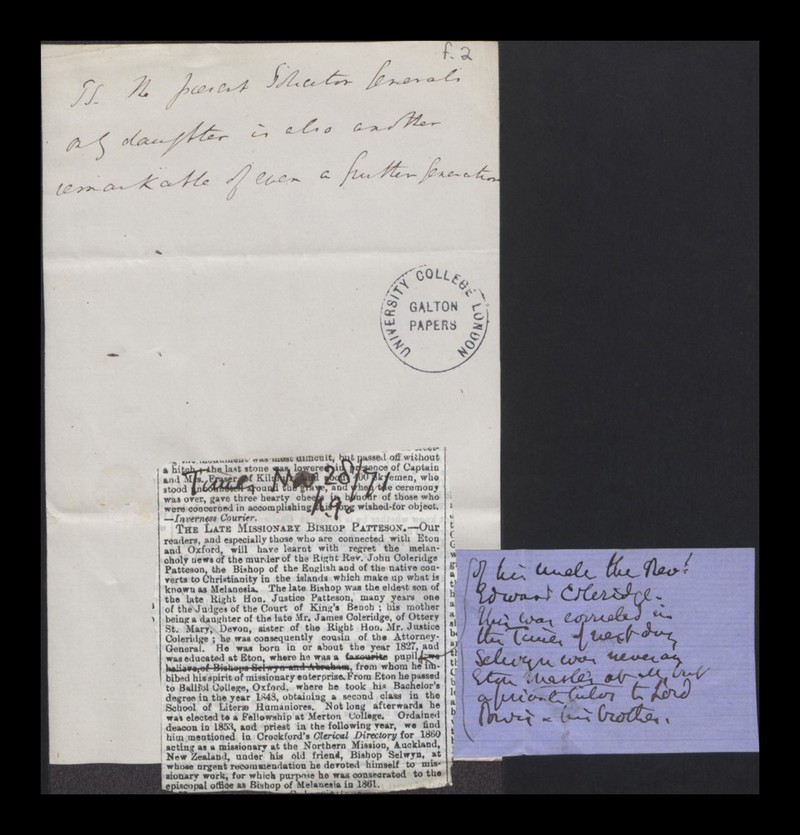 f. 2
PS. The present Solicitor Generals
only daughter is also another
remarkable of even a further generation
UNIVERSITY COLLEGE LONDON
GALTON
PAPERS
the monument was most difficult, but passed off without
a hitch; the last stone was lowered in presence of Captain
and Mrs. Fraser of
stood around the and when the ceremony
was over, gave three hearty of those who
were concerned in accomplishing wished-for object.
—Inverness Courier.
Times Nov 28/71
p. 9.
THE LATE MISSIONARY BISHOP PATTESON.—Our
readers, and especially those who are connected with Eton
and Oxford, will have learnt with regret the melan-
choly news of the murder of the Right Rev. John Coleridge
Patteson, the Bishop of the English and of the native con-
verts to Christianity in the islands which make up what is
known as Melanesia. The late Bishop was the eldest son of
the late Right Hon. Justice Patteson, many years one
of the Judges of the Court of King's Bench; his mother
being a daughter of the late Mr. James Coleridge, of Ottery
St. Mary, Devon, sister of the Right Hon. Mr. Justice
Coleridge; he was consequently cousin of the Attorney-
General. He was born in or about the year 1827, and
was educated at Eton, where he was a favourite pupil
believe, of Bishops Selwyn and Abraham, from whom he im-
bibed his spirit of missionary enterprise. From Eton he passed
to Balliol College, Oxford, where he took his Bachelor's
degree in the year 1848, obtaining a second class in the
School of Literæ Humaniores. Not long afterwards he
was elected to a Fellowship at Merton College. Ordained
deacon in 1853, and priest in the following year, we find
him mentioned in Crockford's Clerical Directory for 1860
acting as a missionary at the Northern Mission, Auckland,
New Zealand, under his old friend, Bishop Selwyn, at
whose urgent recommendation he devoted himself to mis-
sionary work, for which purpose he was consecrated to the
episcopal office as Bishop of Melanesia in 1861.
of his uncle the Revd.
Edward Coleridge.
This was corrected in
the Times of next day
Selwyn was never an
Eton Master at all, but
a private tutor to Lord
Powis & his brother.